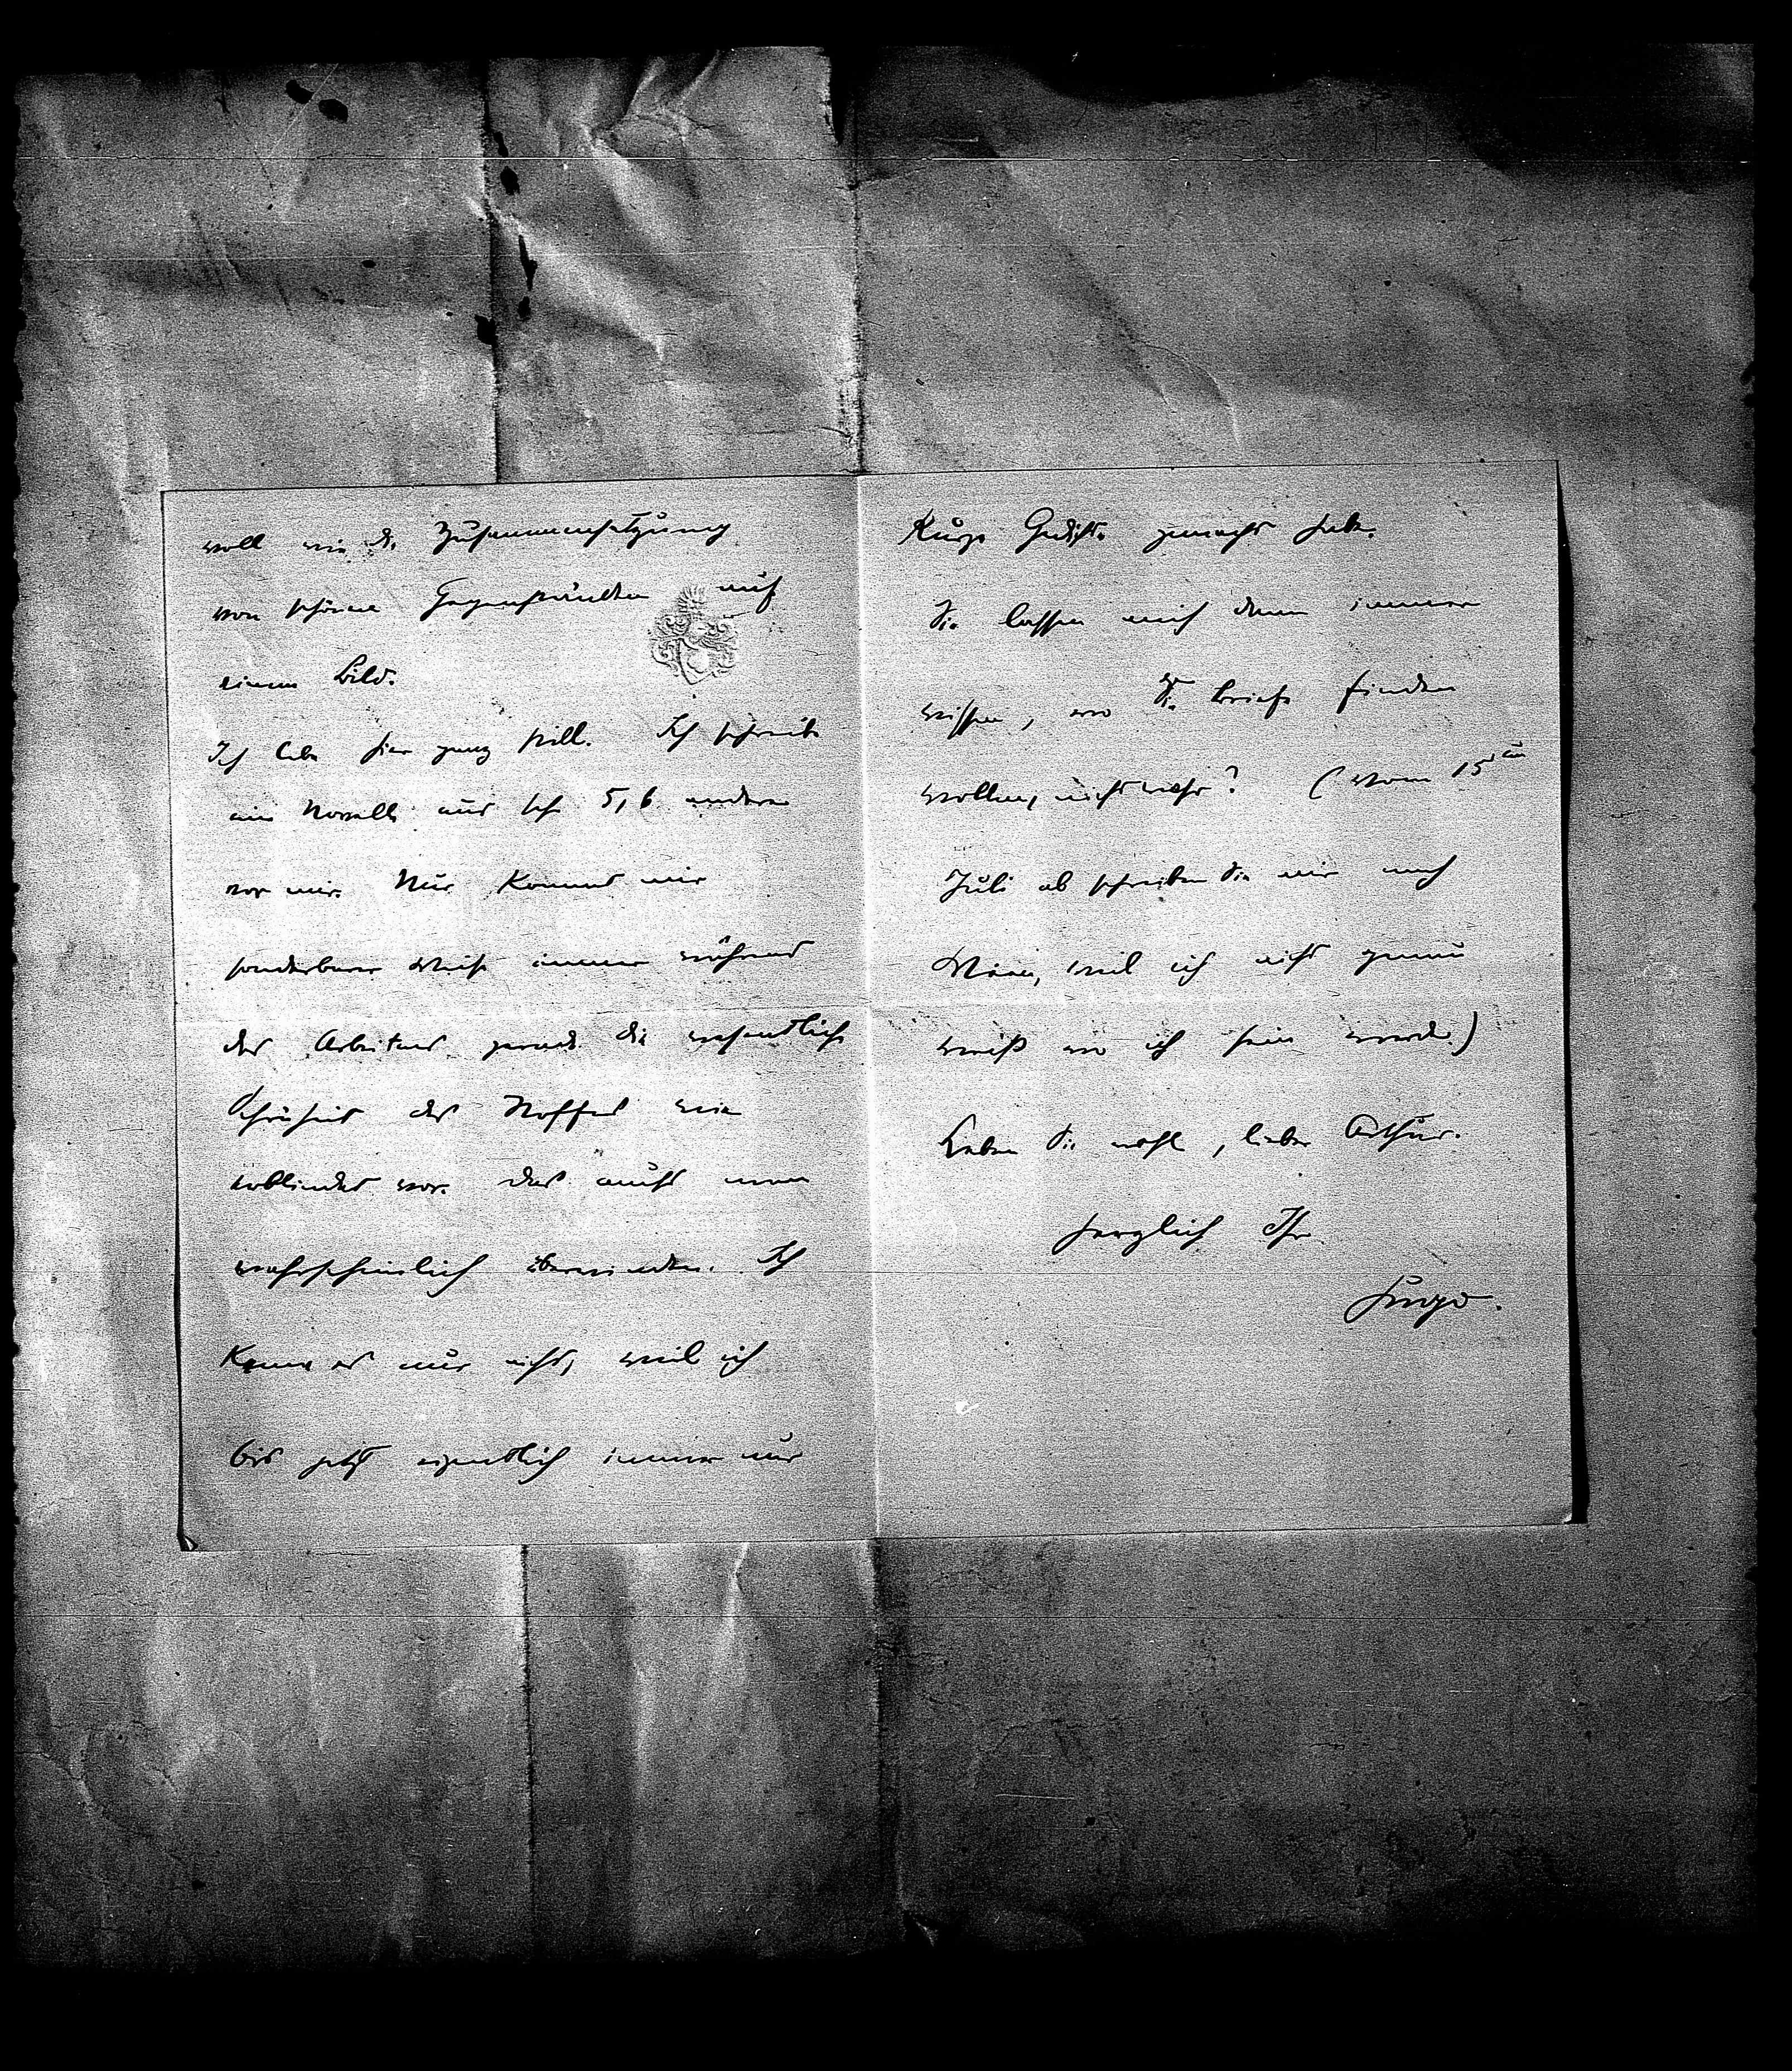 voll wie die Zusammensetzung
von schönen Gegenständen auf
einem Bild.
Ich lebe hier ganz still. Ich schreibe
eine Novelle und sehe 5, 6 andere
vor mir. Nur kommt mir
sonderbarer Weise immer während
des Arbeitens gerade die wesentliche
Schönheit des Stoffes wie
erblindet vor. Das muß man
wahrscheinlich überwinden. Ich
kenne es nur nicht, weil ich
bis jetzt eigentlich immer nur
kurze Gedichte gemacht habe.
Sie lassen mich dann immer
wissen, wo Sie Briefe finden
wollen, nicht wahr? (Vom 15ten
Juli ab schreiben Sie mir nach
Wien, weil ich nicht genau
weiß wo ich sein werde.)
Leben Sie wohl, lieber Arthur.
Herzlich Ihr
Hugo.